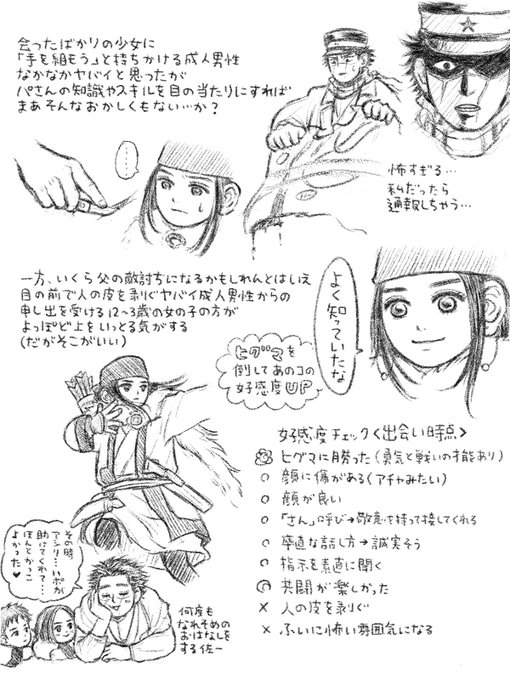 会ったばかりの少女に
「手を組もう」と持ちかける成人男性
なかなかヤバイと思ったが
パさんの知識やスキルを目の当たりにすれば
まあそんなおかしくもない…か？
怖すぎる…
私だったら
通報しちゃう…
……
一方、いくら父の敵討ちになるかもしれんとはいえ
目の前で人の皮を剥ぐヤバイ成人男性からの
申し出を受ける12〜3歳の女の子の方が
よっぽど上をいっとる気がする
（だがそこがいい）
よく知っていたな
ヒグマを
倒してあのコの
好感度UP
好感度チェック<出会い時点>
ヒグマに勝った（勇気と戦いの才能あり）
○ 顔に傷がある（アチャみたい）
○ 顔が良い
○ 「さん」呼び→敬意を持って接してくれる
○ 率直な話し方→誠実そう
○ 指示を素直に聞く
◎ 共闘が楽しかった
× 人の皮を剥ぐ
× ふいに怖い雰囲気になる
その時
アシリ…パが
助けてくれて…
ほんとかっこ
よかった♥
何度も
なれそめの
おはなしを
する佐一